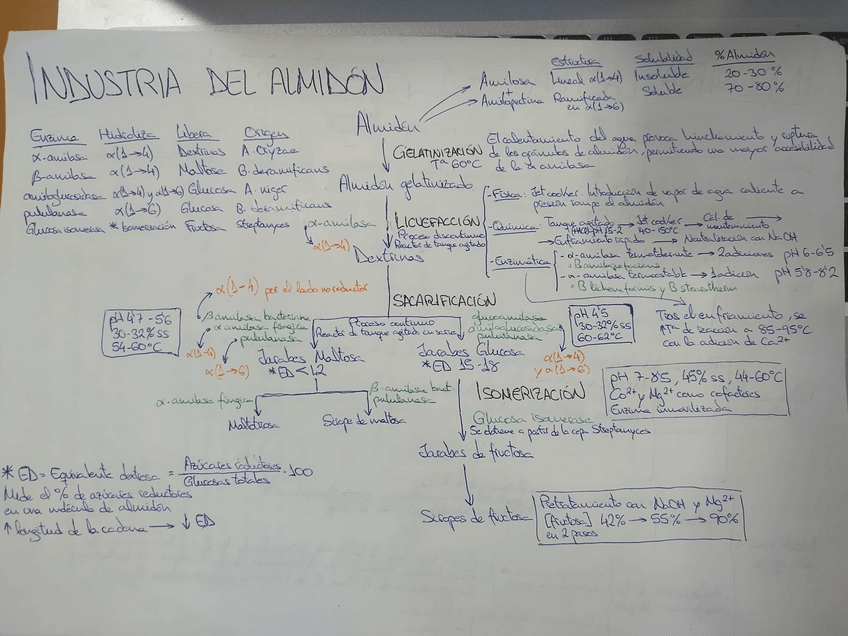 INDUSTRIA DEL ALMIDÓN
Estructura Solubilidad % Almidón
Amilosa Lineal α(1→4) Insoluble 20-30%
+
Amilopectina Ramificada en α(1→6) Soluble 70-80%
Almidón
Enzima Hidroliza Libera Origen
α-amilasa α(1→4) Dextrinas A. Oryzae
β-amilasa α(1→4) Maltosa B. deramificans
amiloglucosidasa α(1→4) y α(1→6) Glucosa A. niger
pululanasa α(1→6) Glucosa B. deramificans
Glucosa isomerasa * Isomerización Fructosa Streptomyces
GELATINIZACIÓN
Tª 60ºC
El calentamiento del agua provoca hinchamiento y ruptura
de los gránulos de almidón, permitiendo una mayor accesibilidad
de la α amilasa
Almidón gelatinizado
LICUEFACCIÓN
Proceso discontinuo
Reactor de tanque agitado
α-amilasa
α(1→4)
Dextrinas
- Física: Jet cooker. Introducción de vapor de agua caliente a
presión rompe el almidón
- Química: Tanque agitado → Jet cooker → Cel. de mantenimiento
40-150ºC
→ Enfriamiento rápido → Neutralización con NaOH
- Enzimática
- α-amilasa termotolerante → 2 adiciones pH 6-6'5
- B amiloliquefaciens
- α-amilasa termoestable → 1 adición pH 5'8-8'2
- B licheniformis y B stearotherm
Tras el enfriamiento, se
↑Tª de reacción a 85-95ºC
con la adición de Ca2+
SACARIFICACIÓN
Proceso continuo
Reactor de tanque agitado en serie
α(1→4) por el lado no reductor
pH 4'7-5'6
30-32% ss
54-60ºC
β amilasa bacteriana
α amilasa fúngica
pululanasa
α(1→4)
α(1→6)
Jarabes Maltosa
* ED < 12
glucoamilasa
amiloglucosidasa
pululanasa
pH 4'5
30-32% ss
60-62ºC
α(1→4)
y α(1→6)
Jarabes Glucosa
* ED 15-18
α-amilasa fúngica
Maltotriosa
β-amilasa bact
pululanasa
Sirope de maltosa
ISOMERIZACIÓN
Glucosa isomerasa
Se obtiene a partir de la cepa Streptomyces
pH 7-8'5, 45% ss, 44-60ºC
Co2+ y Mg2+ como cofactores
Enzima inmovilizada
Jarabes de fructosa
Siropes de fructosa
Pretratamiento con NaOH y Mg2+
[fructosa] 42% → 55% → 90%
en 2 pasos
* ED = Equivalente dextrosa = Azúcares reductores / Glucosas totales · 100
Mide el % de azúcares reductores
en una molécula de almidón
↑ longitud de la cadena → ↓ ED